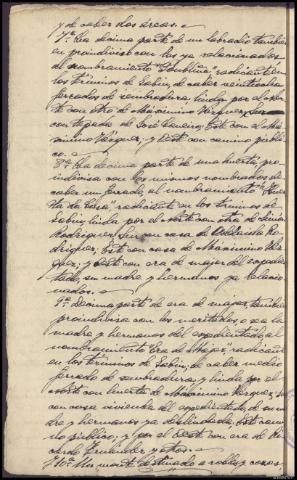 y de caber dos areas.=
7ª. La decima parte de un labradio tambien
en proindiviso con los ya relacionados
de nombramiento radicante en
los términos de Sabin, de caber veinticuatro
ferrados de sembradura, linda por el Norte
con otro de Maximino Vázquez, Sur
con tegada de José Este con el Ma-
ximino Vázquez, y Oeste con camino público
8ª. La decima parte de una huerta, pro-
indivisa con los mismos nombrados de
caber un ferrado al nombramiento "Huer-
ta da Casa" radicante en los términos de
Sabin, linda por el Norte con otra de
Rodriguez, Sur con casa de Ro-
driguez, Este con casa de Maximino Váz-
quez, y Oeste con era de majar del expedien-
tado, su madre y hermanos ya relacio-
nados.=
9ª. Decima parte de era de majar, tambien
proindivisa con los meritados, o sea la
madre y hermanos del expedientado, al
nombramiento "Era de Majar" radicante
en los términos de Sabin, de caber medio
ferrado de sembradura, y linda por el
Norte con huerta de Maximino Vázquez, Sur
con casa vivienda del expedientado, de su ma-
dre y hermanos ya deslindada, Este cami-
no público, y por el Oeste con era de Ri-
cardo Fernández y otros.=
10ª. Un monte destinado a robles y